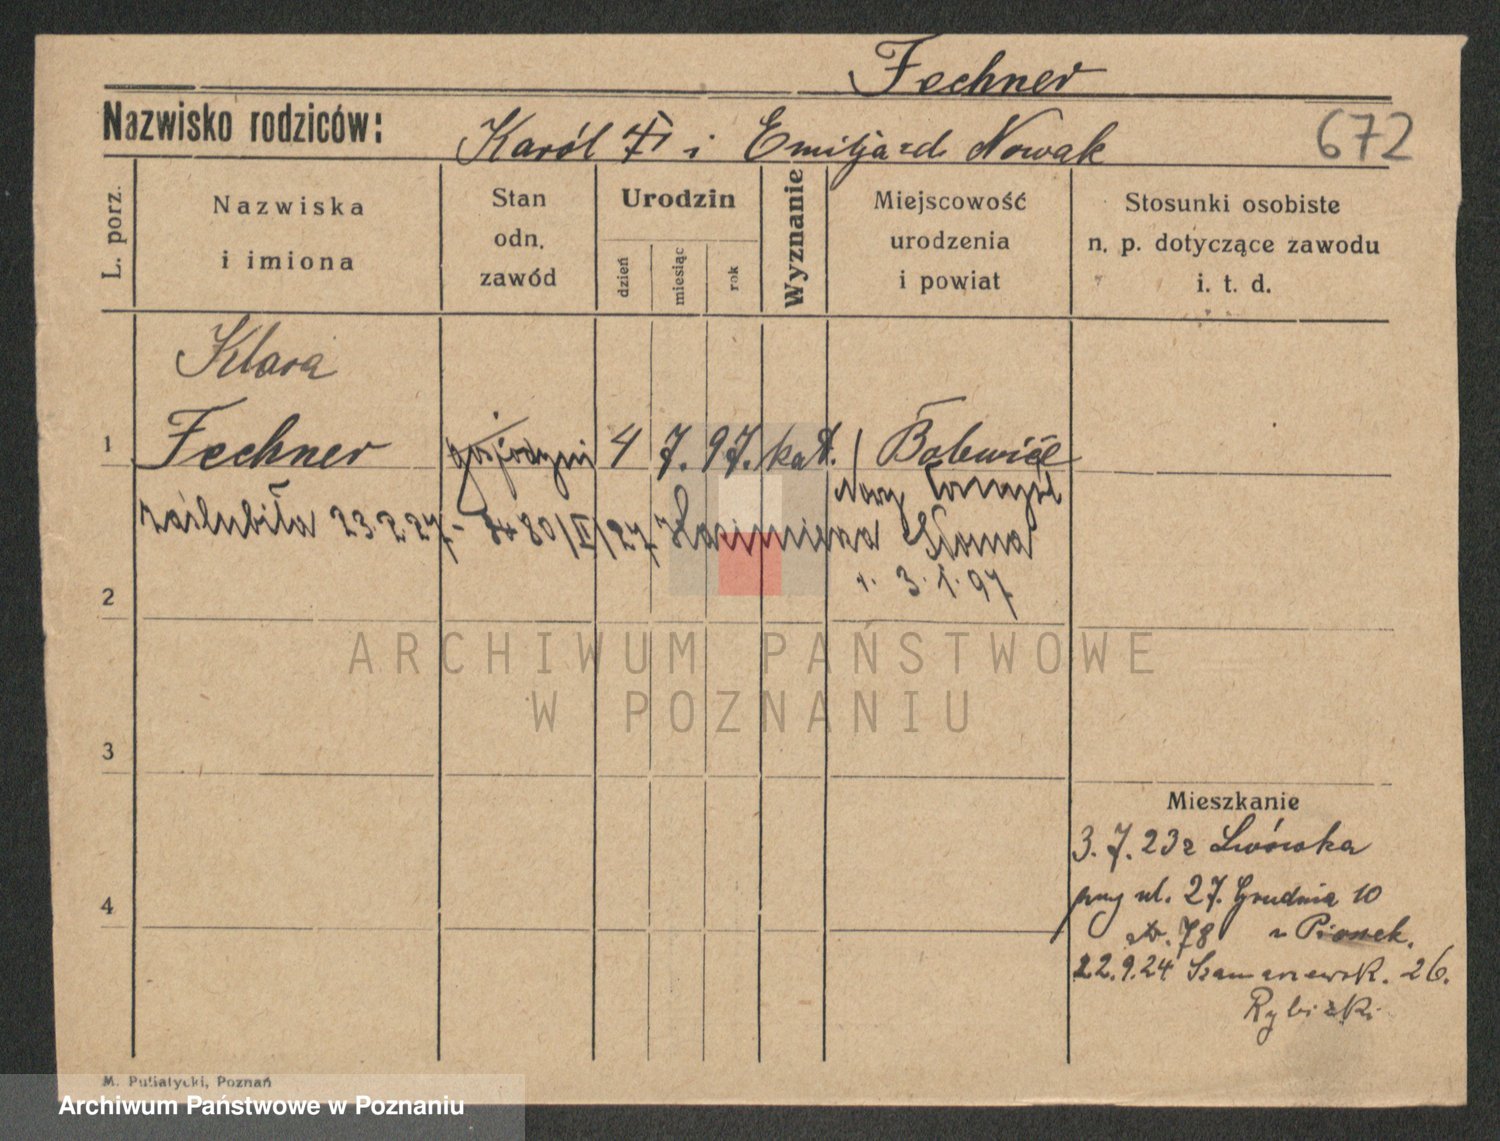 Fechner
Nazwisko rodziców: Karól i Emilja zd. Nowak 672
L. porz.
Nazwiska i imiona
Stan odn. zawód
Urodzin
dzień miesiąc rok
Wyznanie
Miejscowość urodzenia i powiat
Stosunki osobiste n. p. dotyczące zawodu i. t. d.
Klara
1 Fechner gospodyni 4 7. 97. kat.
Nowy Tomyśl
zaślubiła 23.2.27 - 80/II/27 Kazimierza
2 r. 3.1.97
3
4
Mieszkanie
3.7.23 z Lwówka
przy ul. 27. Grudnia 10
str. 78
22.9.24 Szamarzewsk. 26.
Rybicki
ARCHIWUM PAŃSTWOWE
W POZNANIU
M. Putiatycki, Poznań
Archiwum Państwowe w Poznaniu